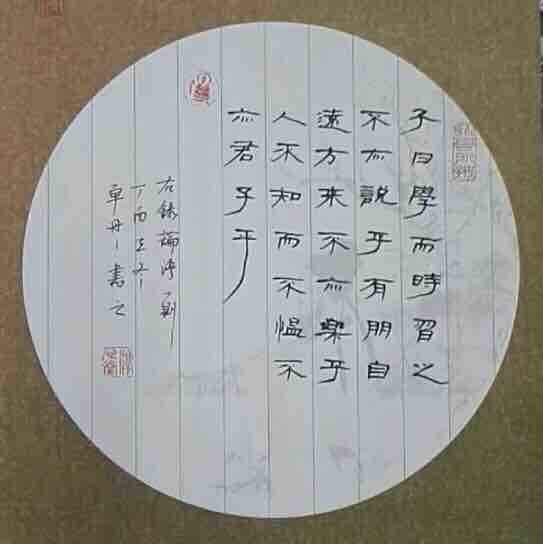 子曰學而時習之
不亦說乎有朋自
遠方来不亦樂乎
人不知而不愠不
亦君子乎
右錄論語一則
丁酉冬
書之